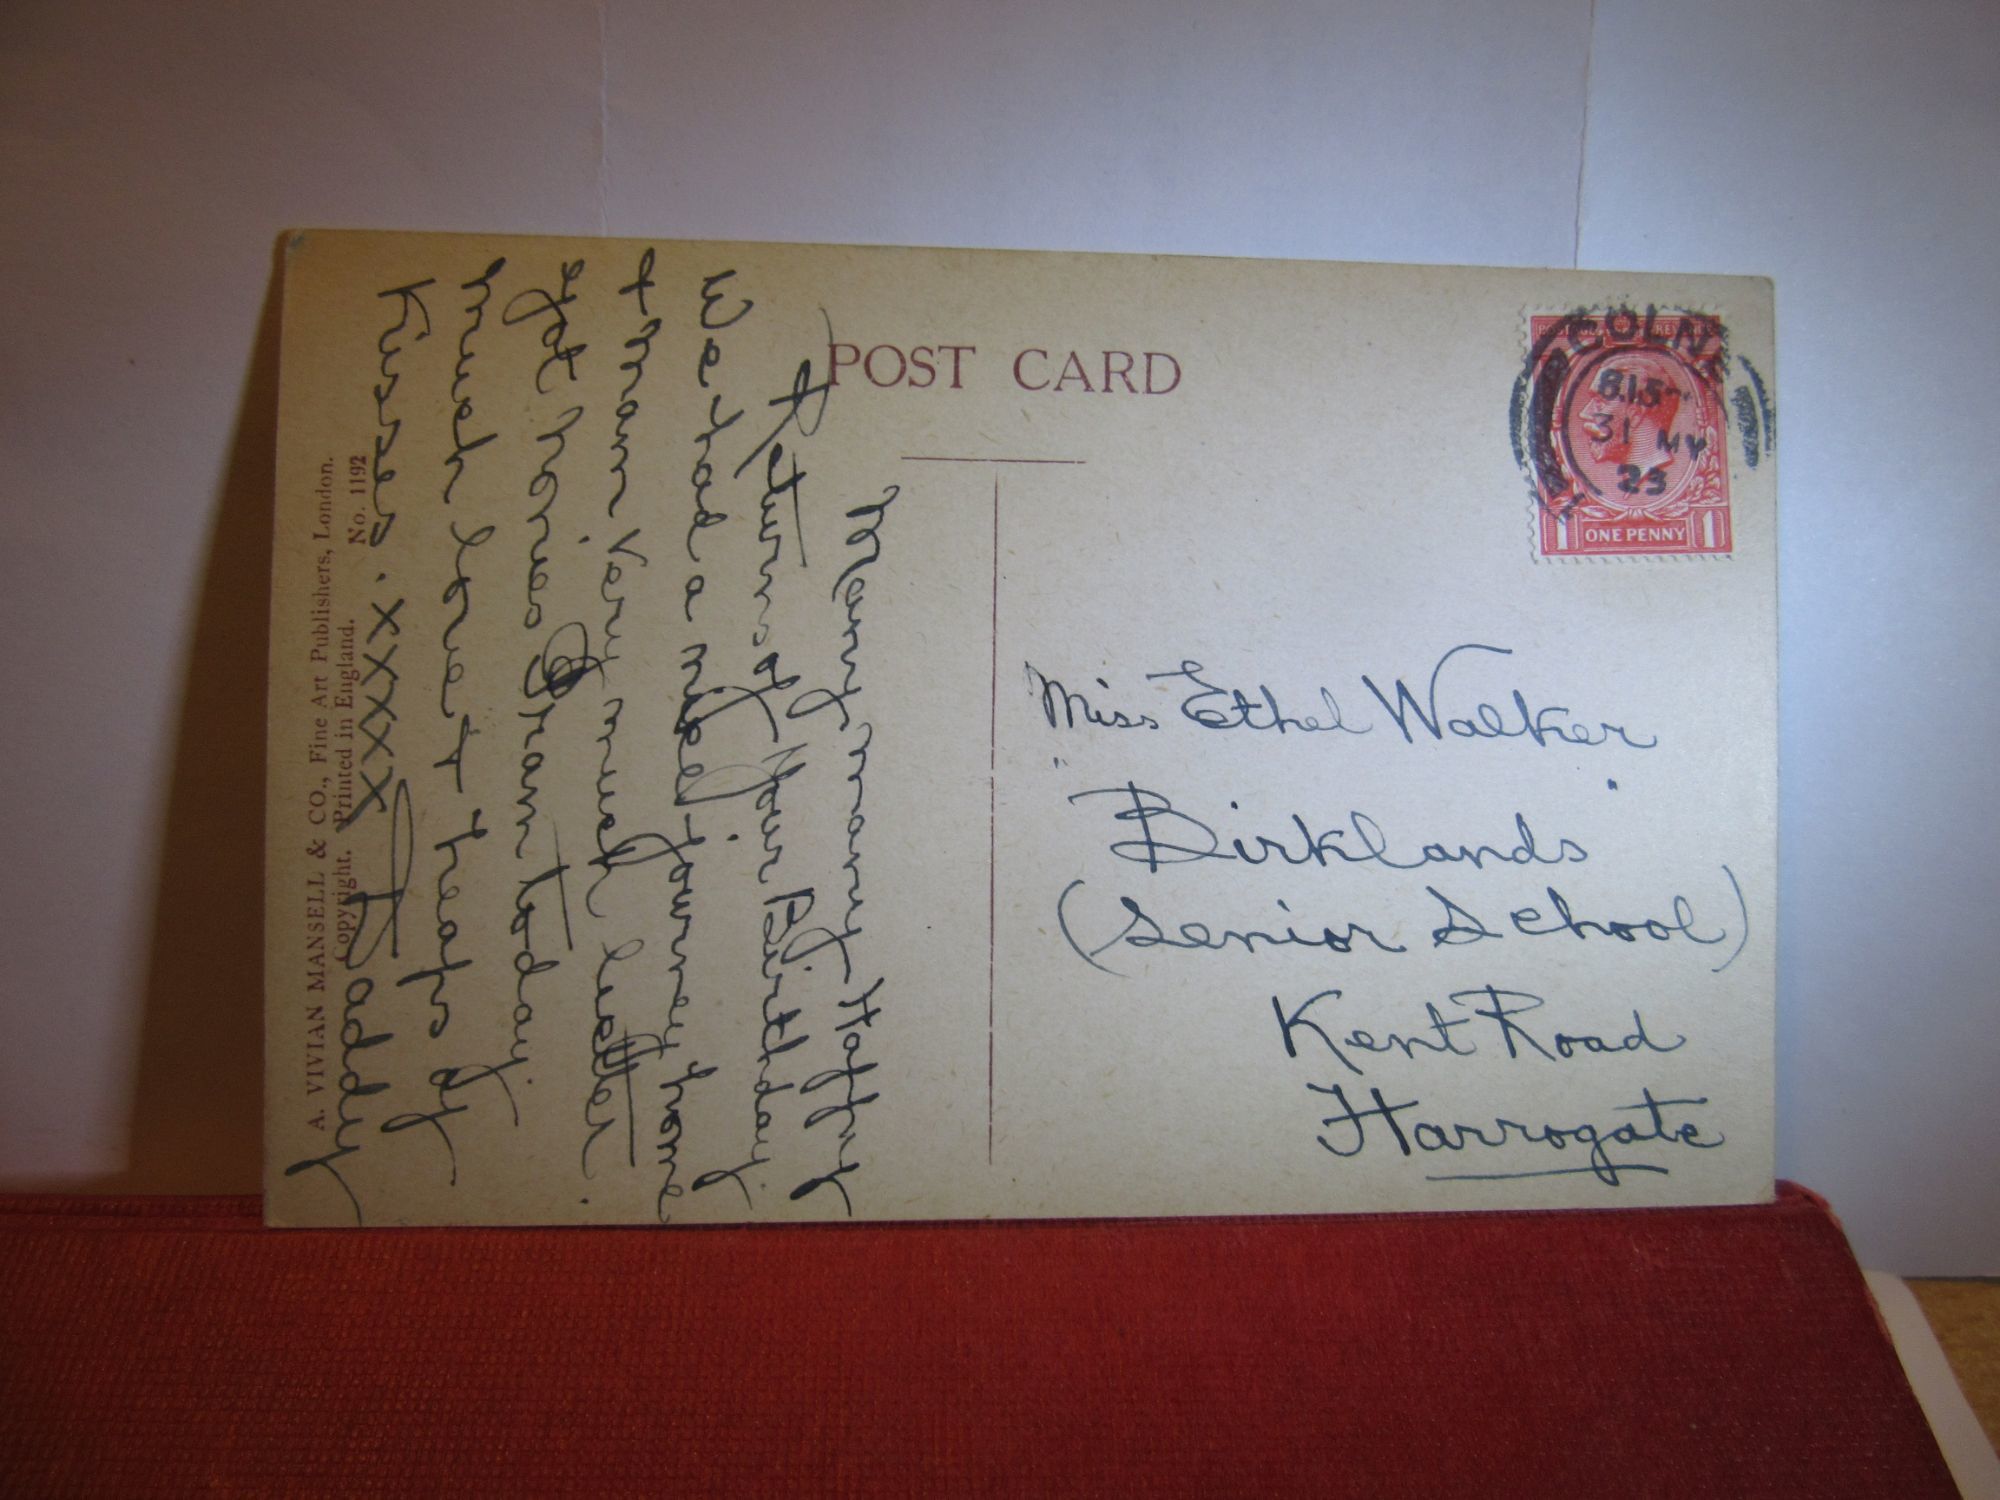 POST CARD
Many many Happy
Returns of Your Birthday
We had a nice journey home
& Mam Very much better.
yot horias Gran today
much love & heaps of
Kisses. xxxxx Daddy
A. VIVIAN MANSELL & CO., Fine Art Publishers, London.
Copyright. Printed in England. No. 1192
COLNE
8.15
31 MY
23
POSTAGE REVENUE
1 ONE PENNY 1
Miss Ethel Walker
"Birklands"
(Senior School)
Kent Road
Harrogate